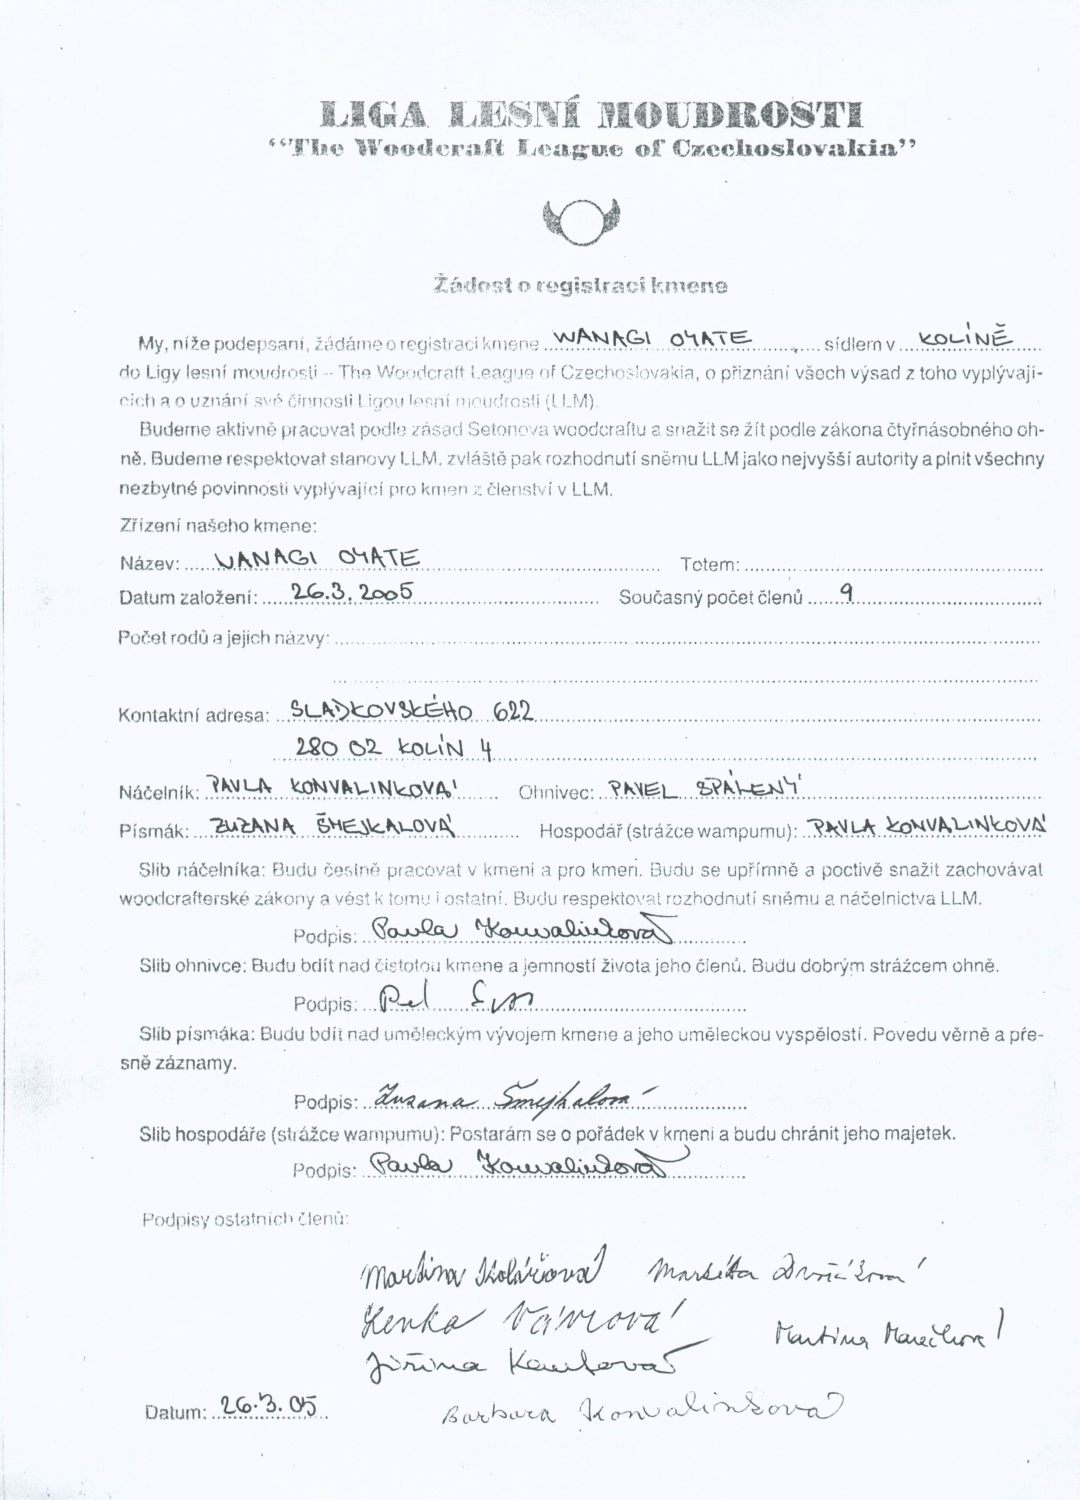 LIGA LESNÍ MOUDROSTI
“The Woodcraft League of Czechoslovakia”
Žádost o registraci kmene
My, níže podepsaní, žádáme o registraci kmene WANAGI OYATE sídlem v KOLÍNĚ
do Ligy lesní moudrosti – The Woodcraft League of Czechoslovakia, o přiznání všech výsad z toho vyplývají-
cích a o uznání své činnosti Ligou lesní moudrosti (LLM).
Budeme aktivně pracovat podle zásad Setonova woodcraftu a snažit se žít podle zákona čtyřnásobného oh-
ně. Budeme respektovat stanovy LLM, zvláště pak rozhodnutí sněmu LLM jako nejvyšší autority a plnit všechny
nezbytné povinnosti vyplývající pro kmen z členství v LLM.
Zřízení našeho kmene:
Název: WANAGI OYATE Totem:
Datum založení: 26.3.2005 Současný počet členů 9
Počet rodů a jejich názvy:
Kontaktní adresa: SLADKOVSKÉHO 622
280 02 KOLÍN 4
Náčelník: PAVLA KONVALINKOVÁ Ohnivec: PAVEL SPÁLENÝ
Písmák: ZUZANA ŠMEJKALOVÁ Hospodář (strážce wampumu): PAVLA KONVALINKOVÁ
Slib náčelníka: Budu čestně pracovat v kmeni a pro kmen. Budu se upřímně a poctivě snažit zachovávat
woodcrafterské zákony a vést k tomu i ostatní. Budu respektovat rozhodnutí sněmu a náčelnictva LLM.
Podpis: Pavla Konvalinková
Slib ohnivce: Budu bdít nad čistotou kmene a jemností života jeho členů. Budu dobrým strážcem ohně.
Podpis:
Slib písmáka: Budu bdít nad uměleckým vývojem kmene a jeho uměleckou vyspělostí. Povedu věrně a pře-
sně záznamy.
Podpis: Zuzana Šmejkalová
Slib hospodáře (strážce wampumu): Postarám se o pořádek v kmeni a budu chránit jeho majetek.
Podpis: Pavla Konvalinková
Podpisy ostatních členů:
Martina Kolářová Markéta Dvořáková
Lenka Vávrová
Martina
Jiřina
Datum: 26.3.05 Barbara Konvalinková